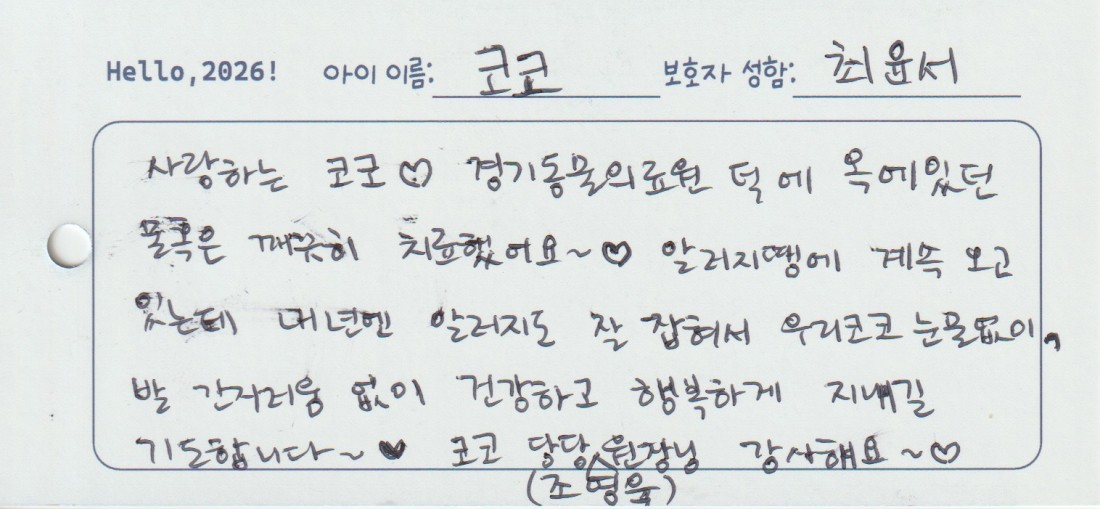 Hello,2026! 아이 이름: 코코 보호자 성함: 최윤서
사랑하는 코코♡ 경기동물의료원 덕에 목에있던
물혹은 깨끗히 치료했어요~♡ 알러지땜에 계속 오고
있는데 내년엔 알러지도 잘 잡혀서 우리코코 눈물없이,
발 간지러움 없이 건강하고 행복하게 지내길
기도합니다~♥ 코코 담당 원장님 감사해요~♡
(조영욱)